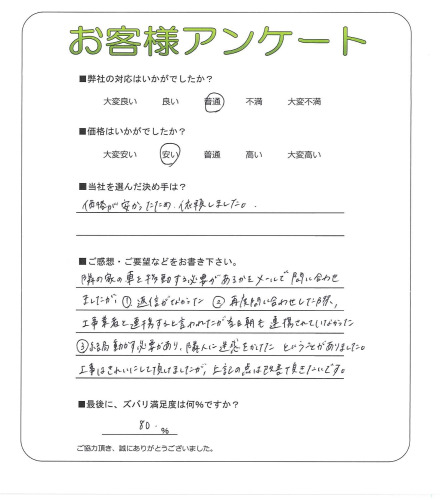 お客様アンケート
■弊社の対応はいかがでしたか？
大変良い 良い 普通 不満 大変不満
■価格はいかがでしたか？
大変安い 安い 普通 高い 大変高い
■当社を選んだ決め手は？
価格が安かったため、依頼しました。
■ご感想・ご要望などをお書き下さい。
隣の家の車を移動する必要があるかをメールで問い合わせ
ましたが、①返信がなかった ②再度問い合わせした際、
工事業者と連携すると言われたが当日朝も連携されていなかった
③結局動かす必要があり、隣人に迷惑をかけた ということがありました。
工事はきれいにして頂けましたが、上記の点は改善頂きたいです。
■最後に、ズバリ満足度は何％ですか？
80 ％
ご協力頂き、誠にありがとうございました。